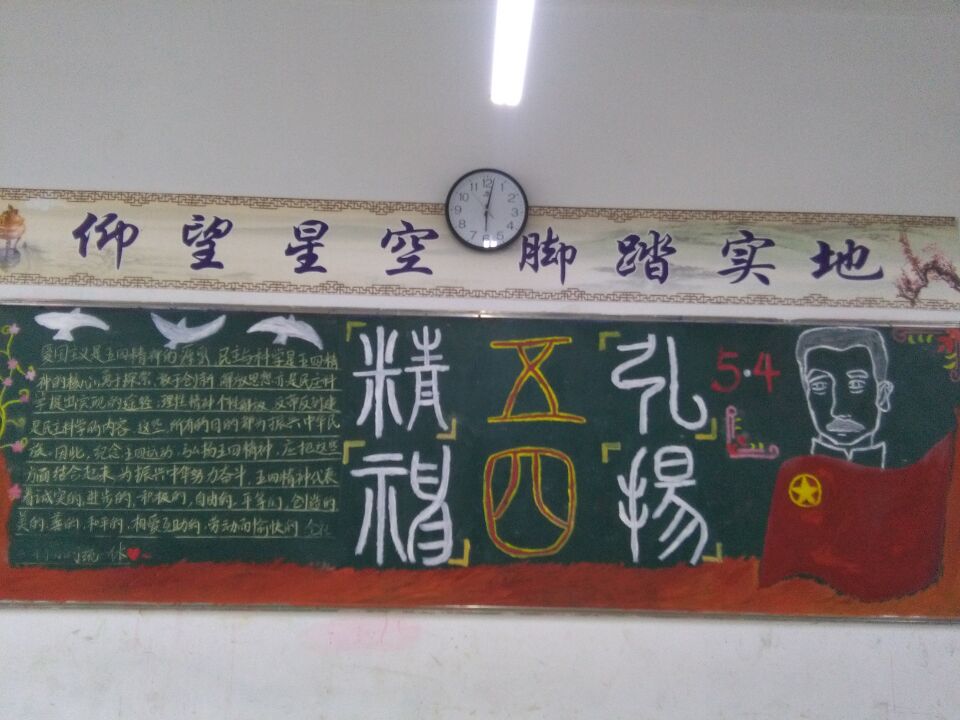 仰望星空 脚踏实地
弘扬
五四
精神
5·4
爱国主义是五四精神的源泉 民主与科学是五四精
神的核心,勇于探索、敢于创新 解放思想 是民主科
学提出实现的途径 理性精神 个性解放 反帝反封建
是民主科学的内容 这些 所有的目的都为振兴中华民
族. 因此, 纪念五四运动, 弘扬五四精神, 应把这些
方面结合起来,为振兴中华努力奋斗. 五四精神代表
着诚实的, 进步的, 积极的, 自由的, 平等的, 创造的
美的, 善的, 和平的, 相爱互助的, 劳动而愉快的